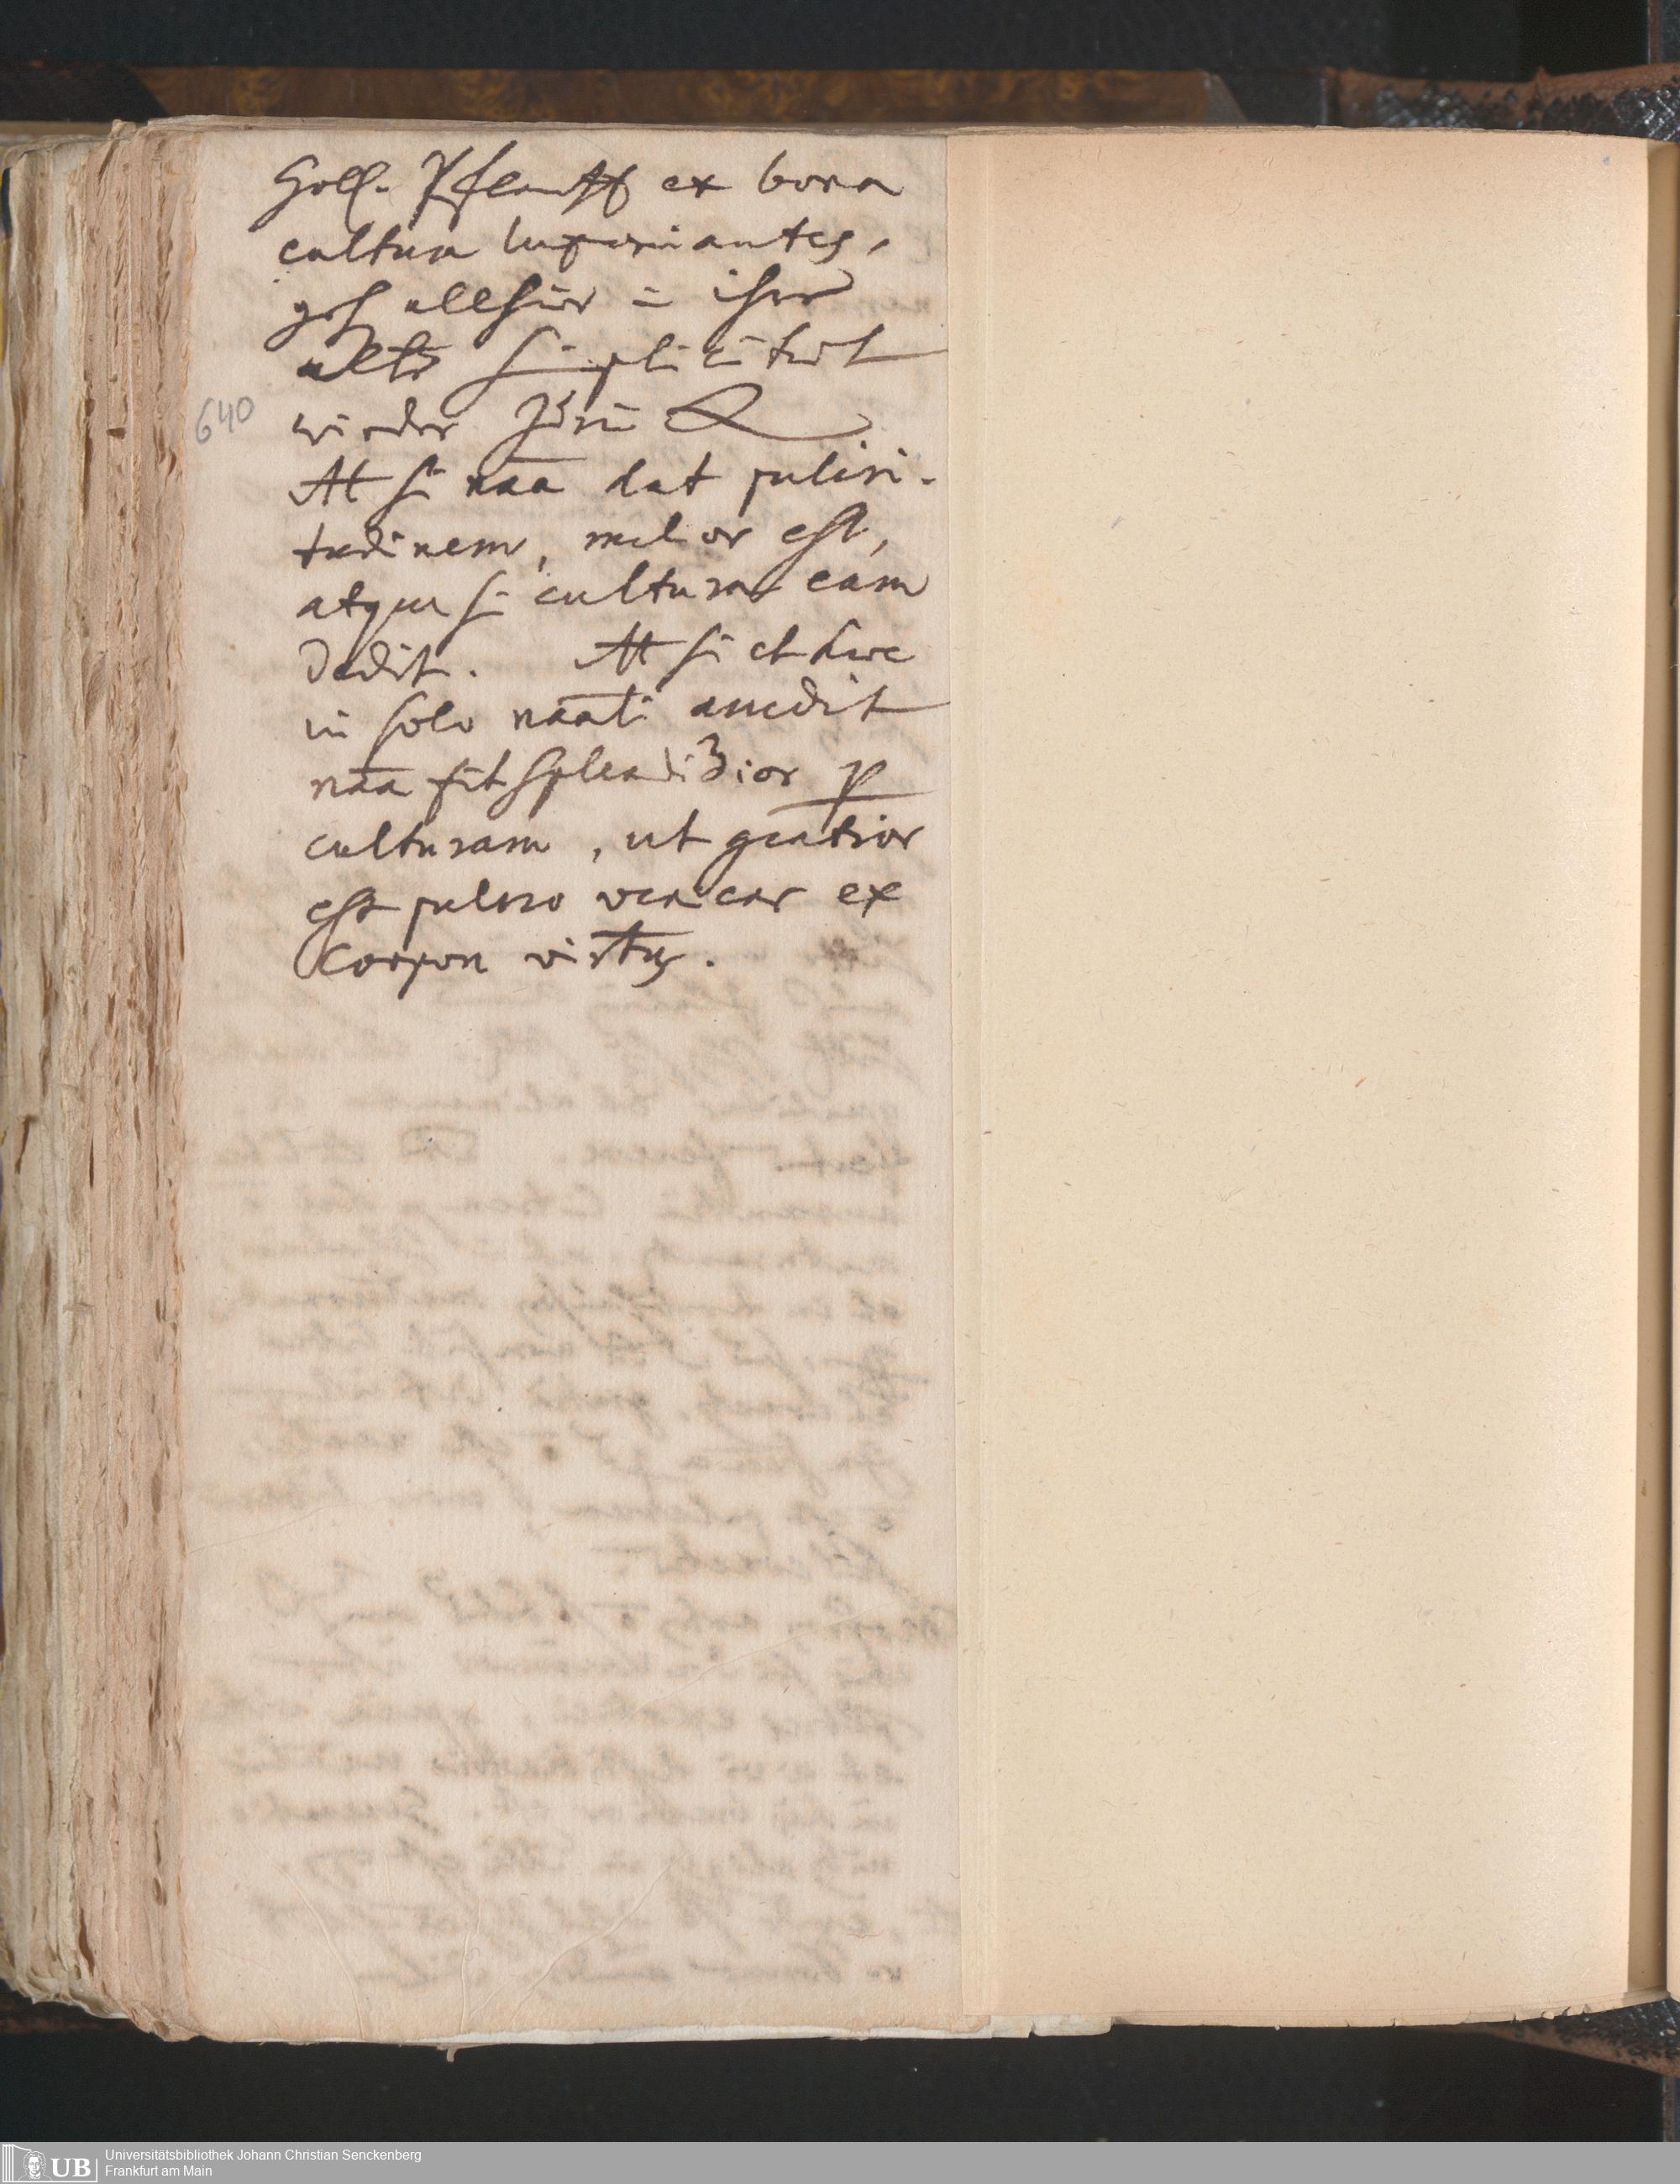 Holl. Pflantz ex bona
cultura luxuriantes,
geh allhier in ihre
alte simplicitæt
wieder
640
At si nāa dat pulcri-
tudinem, melior est,
atque si cultura eam
dedit. At si et hæc
in solo nāali accedit
nāa fit splendidior p
culturam, ut gratior
est pulcro veniens ex
corpore virtus.
UB
Universitätsbibliothek Johann Christian Senckenberg
Frankfurt am Main